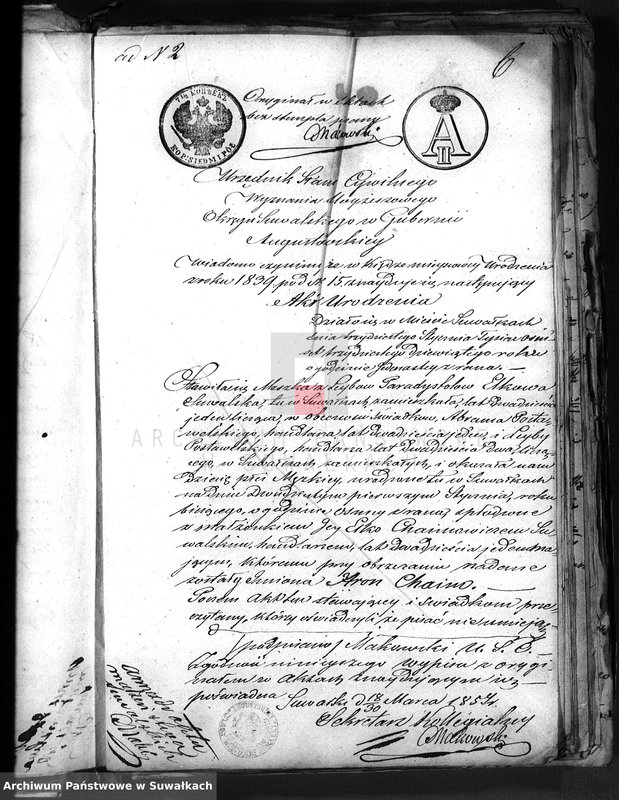 ad N 2
6
7½ КОПѢЕКЪ
KOP: SIEDM I PÓŁ
Oryginał w aktach
bez stempla pisany
Makowski
A
II
Urzędnik Stanu Cywilnego
Wyznania Mojżeszowego
Okręgu Suwalskiego w Gubernii
Augustowskiey
Wiadomo czynimy że w Księdze miejscowey Urodzenia
z roku 1839 pod Nr 15 znayduje się następujący
Akt Urodzenia
Działo się w Mieście Suwałkach
dnia trzydziestego Stycznia Tysiąc ośm
set trzydziestego dziewiątego roku o
godzinie jedenastey zrana. —
Stawiła się Meszka z Leybow Etkowa
Suwalska, tu w Suwałkach zamieszkała, lat dwadzieścia
jeden licząca, w obecności świadków, Abrama Posta-
welskiego, handlarza, lat dwadzieścia jeden, i Leyby
Postawelskiego, handlarza lat dwadzieścia dwa liczą-
cego, w Suwałkach zamieszkałych, i okazała nam
Dziecię płci Męzkiey, urodzone tu w Suwałkach
na dniu Dwudziestym pierwszym Stycznia, roku
bieżącego, o godzinie osmey zrana, spłodzone
z małżonkiem Jey Etko Chaimowiczem Su-
walskim, handlarzem, lat dwadzieścia jeden ma-
jącym, któremu przy obrzezaniu nadane
zostały Imiona Aron Chaim. —
Poczem Akt ten stawającey i świadkom prze
czytany, którzy oświadczyli że pisać nieumieją
(podpisano) Makowski U. S. C.
Zgodność ninieyszego wypisu z orygi-
nałem w aktach znaydującym się
poświadcza Suwałki d 18/30 Marca 1857 r.
Sekretarz Kollegialny
Makowski
ARCHIWUM PAŃSTWOWE
Archiwum Państwowe w Suwałkach